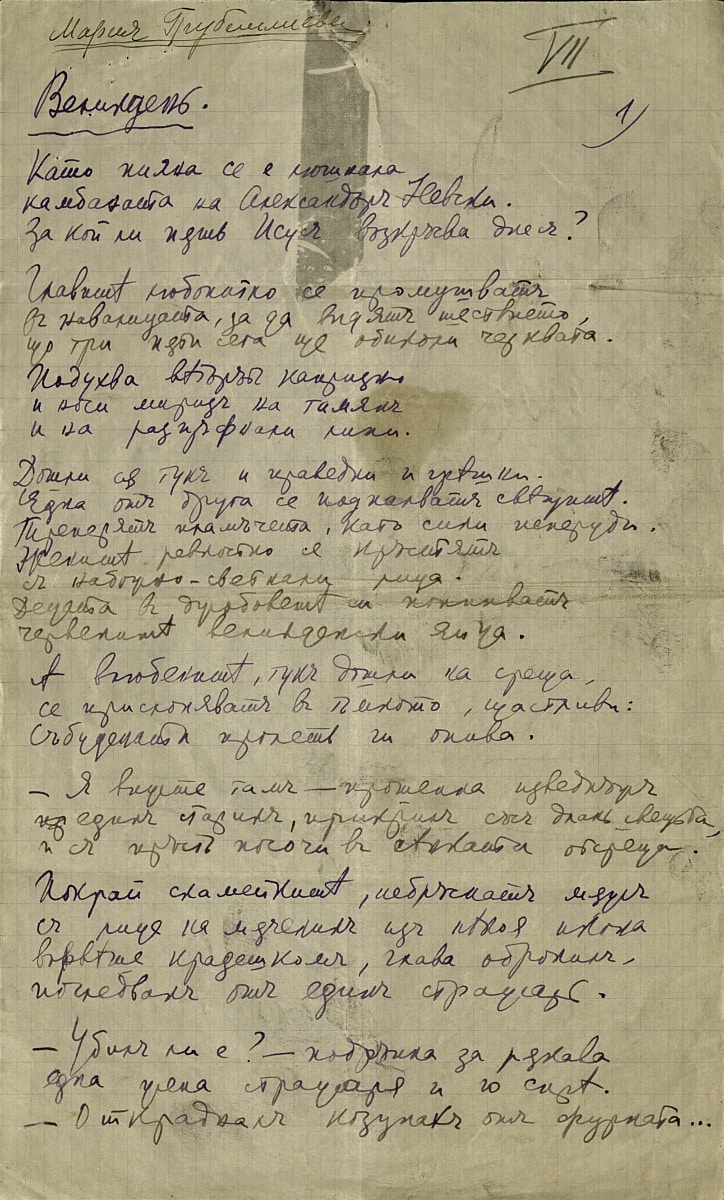 Мария Грубешлиева
VII
Великденъ.
1)
Като пияна се е люшнала
камбаната на Александъръ Невски.
За кой ли пѫть Исусъ възкръсва днесъ?
Главитѣ любопитно се промушватъ
въ навалицата, за да видятъ шествието,
що три пѫти сега ще обиколи черквата.
Подухва вѣтърътъ напридно
и носи миризъ на тамянъ
и на разцъфнали липи.
Дошли сѫ тукъ и праведни и грѣшни.
Една отъ друга се подпалватъ свѣщитѣ.
Треперятъ пламъчета, като сини пеперуди.
Жените ревностно се кръстятъ
съ набожно-светнали лица.
Децата въ джобоветѣ си попипватъ
червенитѣ великденски яйца.
А влюбенитѣ, тукъ дошли на среща,
се прислоняватъ въ тъмното, щастливи:
събудената пролеть ги опива.
— Я вижте тамъ — прошепна изведнъжъ
единъ старикъ, прикрилъ съсъ длань свещьта,
и съ пръстъ посочи въ сѣнката отсреща.
Покрай скамейкитѣ, небръснатъ мѫжъ
съ лице на мѫченикъ изъ нѣкоя икона
вървѣше крадешкомъ, глава обронилъ,
последванъ отъ единъ стражарь.
— Убилъ ли е? — побръзна за рѫкава
една жена стражаря и го спрѣ.
— Открадналъ козунакъ отъ фурната...